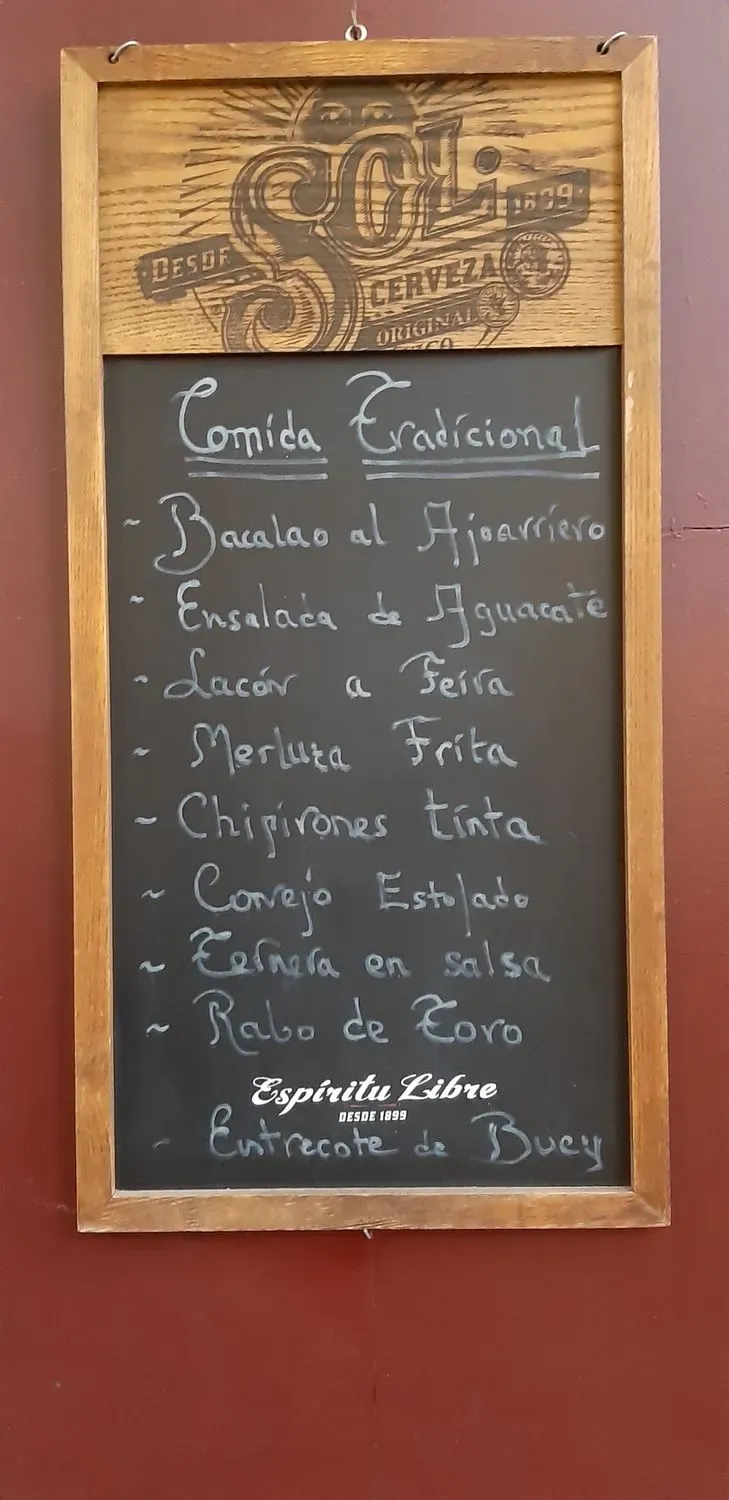 SOL
DESDE 1899
CERVEZA
ORIGINAL
Comida Tradicional
~ Bacalao al Ajoarriero
~ Ensalada de Aguacate
~ Lacón a Feira
~ Merluza Frita
~ Chipirones tinta
~ Conejo Estofado
~ Ternera en salsa
~ Rabo de Toro
Espíritu Libre
DESDE 1899
~ Entrecote de Buey